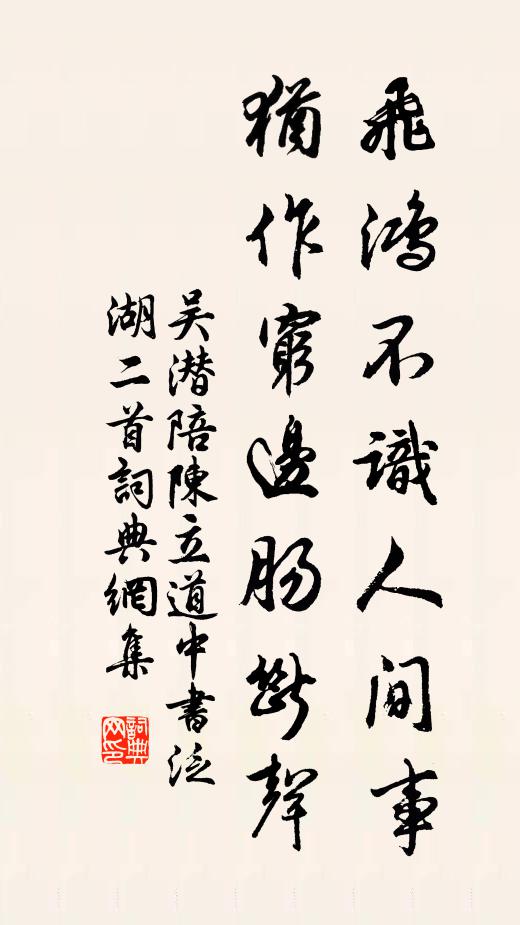 飛鴻不識人間事
猶作窮邊腸斷聲
吴潜陪陳立道中書泛
湖二首詞典網集
詞典
网印